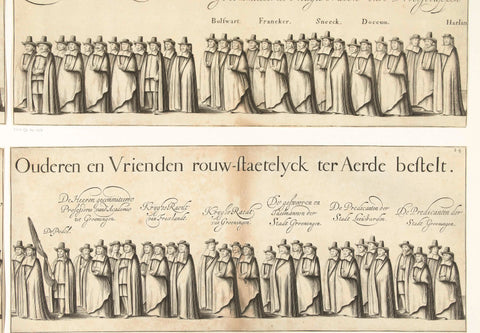 Bolswart. Francker. Sneeck. Doccum. Harlin
Ouderen en Vrienden rouw-staetelyck ter Aerde bestelt.
De Heeren gecommitteerde
Professoren van d'Academie
te Groeningen
De Pedel
Krygs Raedt
van Frieslandt.
Krygs Raedt
van Groeningen.
De geswooren en
Taelmannen der
Stadt Groeningen.
De Predicanten der
Stadt Leeuwarden.
De Predicanten der
Stadt Groeningen.